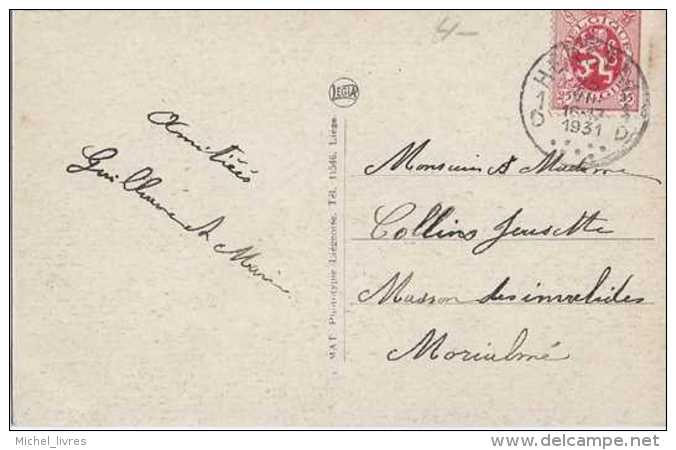 4-
BELGIQUE
1931
LEGIA
Amitiés
Guillaume et Marie
MAT Phototypie Liégeoise. Tél. 11546. Liége
Monsieur & Madame
Collins Jeusette
Masson des invalides
Morialmé
Michel_livres
www.delcampe.net